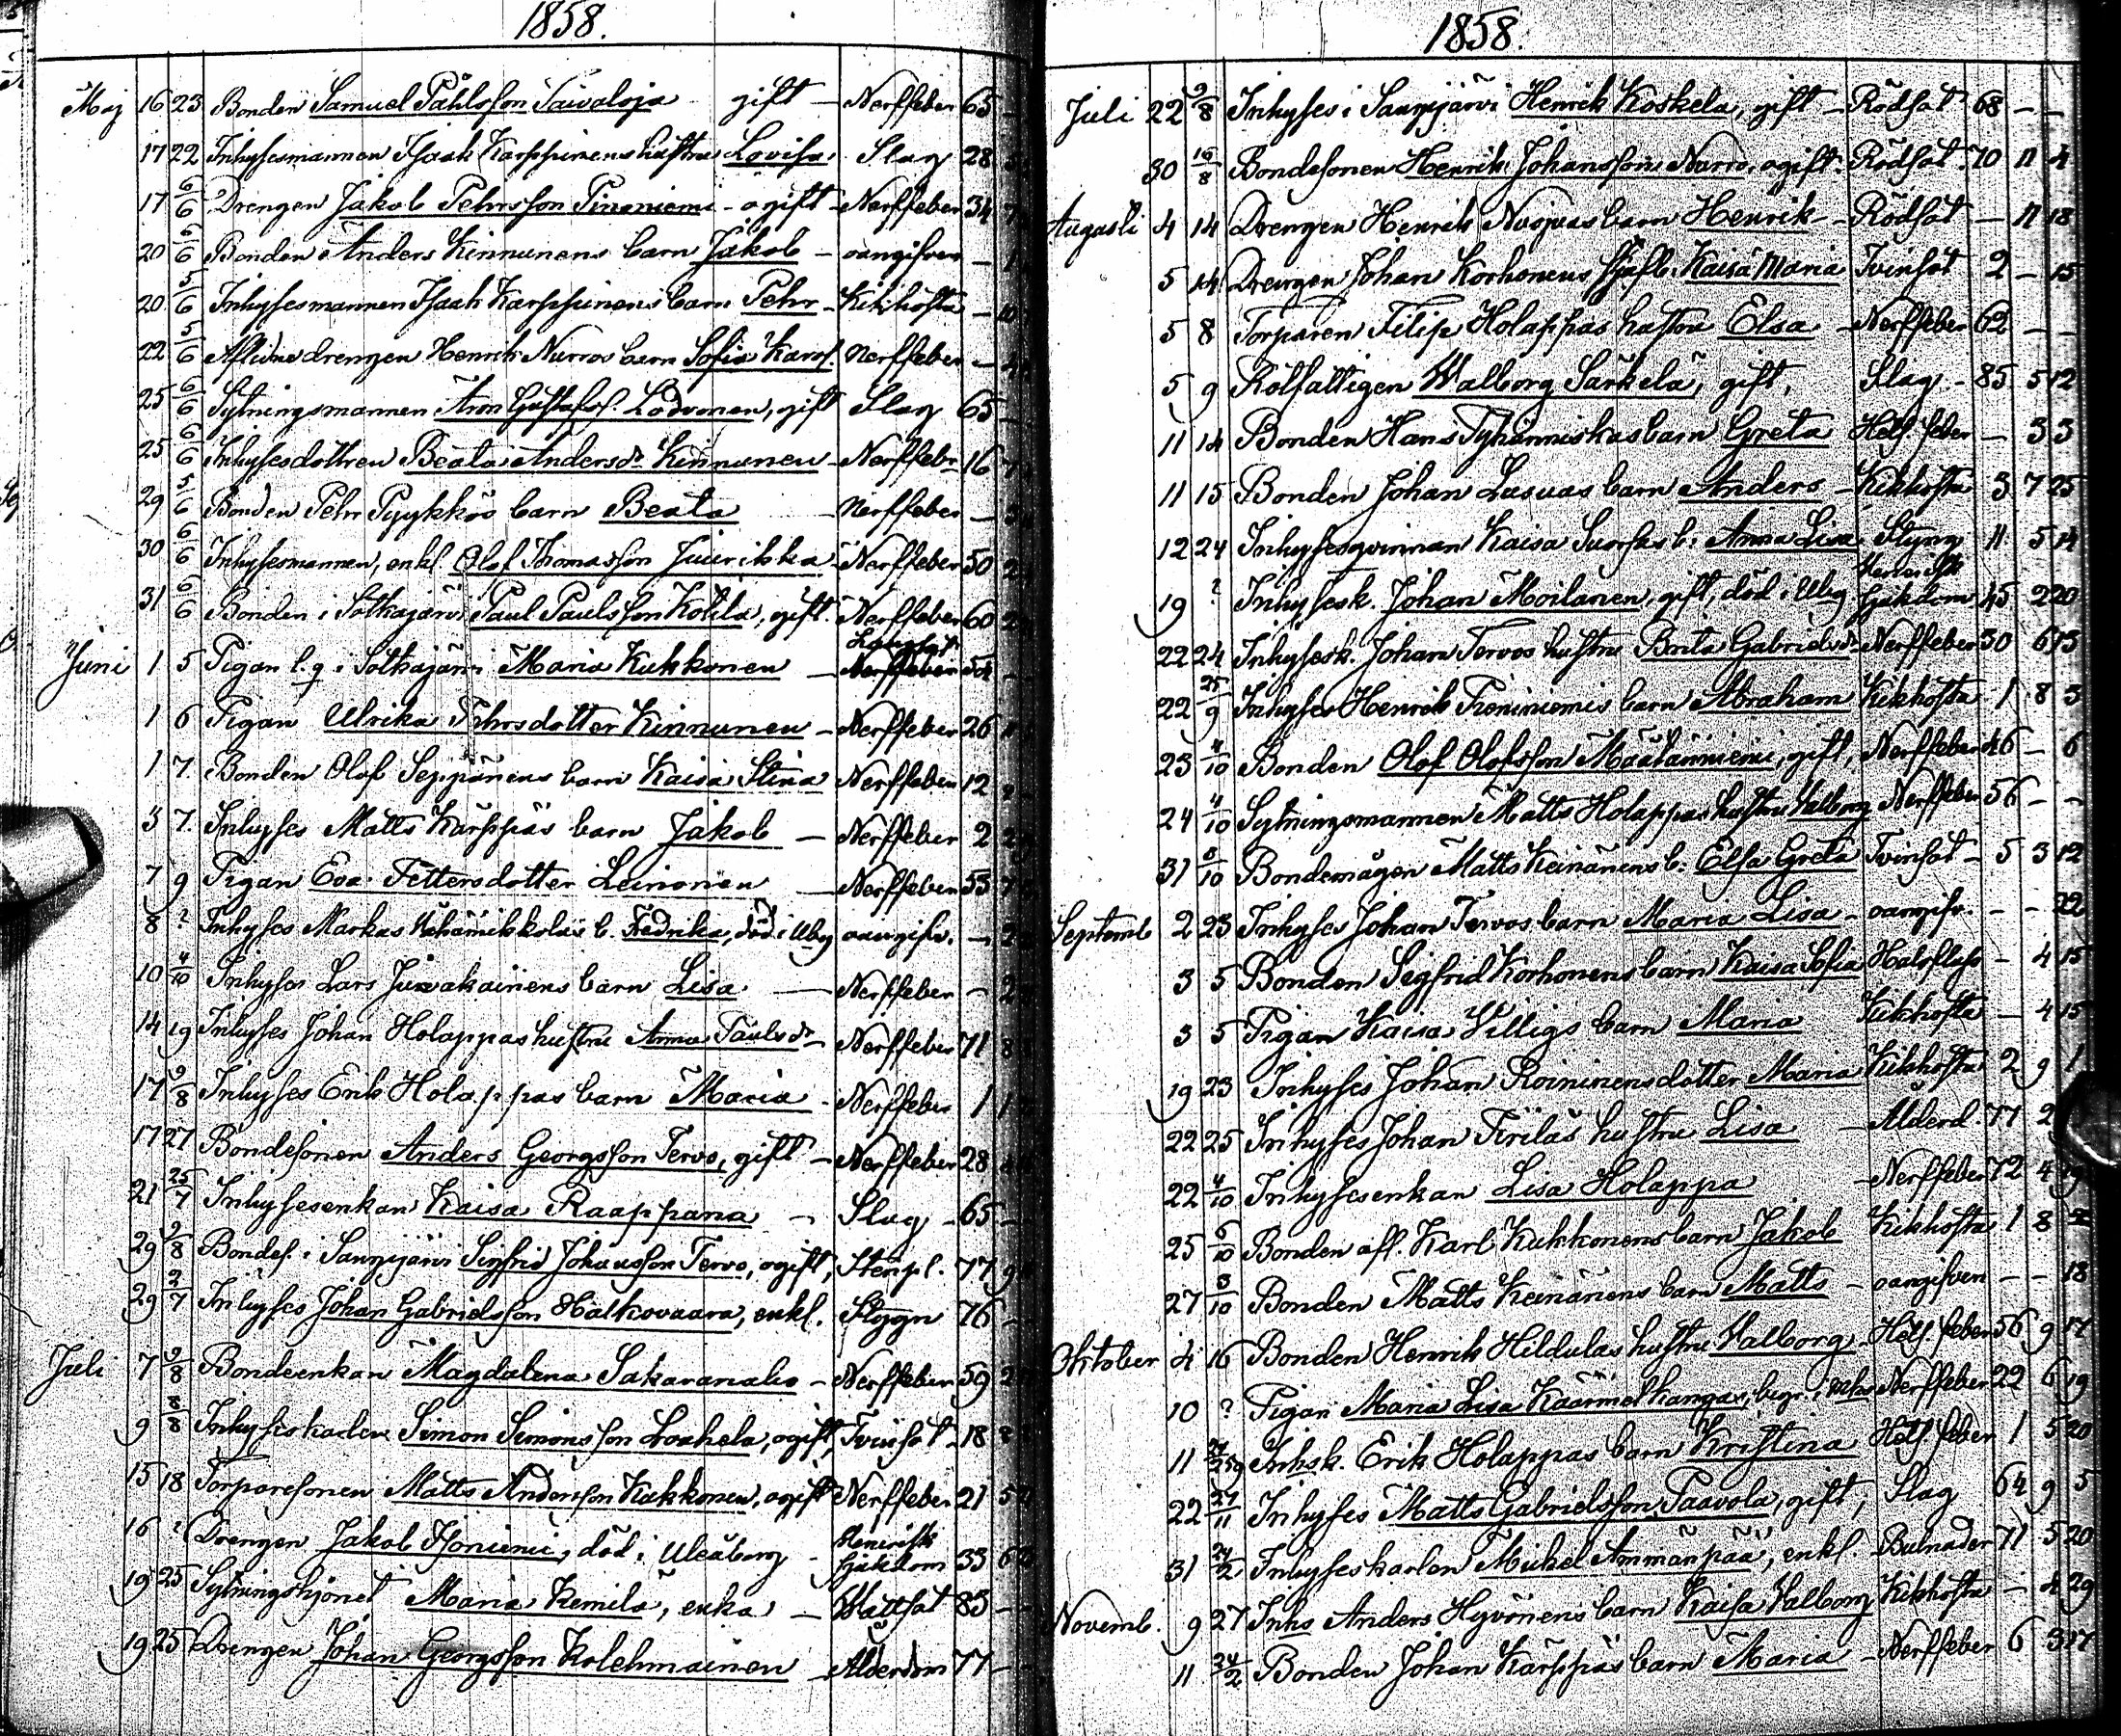 1858.
Maj 16 23 Bonden Samuel Påhlsson Taivaloja gift - Nerffeber 65
17 22 Inhysesmannen Isaak Karppinens hustru Lovisa Slag 28
17 6/6 Drengen Jakob Pehrsson Piноniemi - ogift - Nerffeber 34
20 6/6 Bonden Anders Kinnunens barn Jakob - oangifven -
20 5/6 Inhysesmannen Isaak Karppinens barn Pehr - Kikhosta - 10
22 5/6 Aflidne drengen Henrik Nurros barn Sofia Karol. Nerffeber -
25 6/6 Sytningsmannen Aron Gustafss. Lodvonen, gift Slag 65
25 6/6 Inhysesdottren Beata Andersdr Kinnunen - Nerffebr 16
29 5/6 Bonden Pehr Pyykkös barn Beata - Nerffeber -
30 6/6 Inhysesmannen, enkl. Olof Thomasson Juurikka - Nerffeber 50
31 6/6 Bonden i Sotkajärvi Paul Paulsson Kotila, gift. Nerffeber 60
Juni 1 5 Pigan l.q. i Sotkajärvi Maria Kukkonen - Nerffeber 54
1 6 Pigan Ulrika Pehrsdotter Kinnunen - Nerffeber 26
1 7. Bonden Olof Seppänens barn Kaisa Stina Nerffeber 12
3 7. Inhyses Matts Kärppäs barn Jakob - Nerffeber 2
7 9 Pigan Eva Pettersdotter Leinonen - Nerffeber 53
8 ? Inhyses Markus b. Fredrika, död i Ubg oangifv. -
10 4/10 Inhyses Lars Juvakainens barn Lisa - Nerffeber -
14 19 Inhyses Johan Holappas hustru Anna Paulsdr - Nerffeber 71
17 9/8 Inhyses Erik Holappas barn Maria - Nerffeber 1
17 27 Bondesonen Anders Georgsson Tervo, gift - Nerffeber 28
21 25/7 Inhysesenkan Kaisa Raappana - Slag - 65
29 9/8 Bondes. i Sangijärvi Sigfrid Johansson Tervo, ogift, Stenpl. 77
29 2/7 Inhyses Johan Gabrielsson Halkovaara, enkl. Styggn 76
Juli 7 9/8 Bondeenkan Magdalena Sakaranaho - Nerffeber 59
9 8/8 Inhyseskarlen Simon Simonsson Loukela, ogift, Tvinsot - 18
15 18 Torparesonen Matts Andersson Kukkonen, ogift Nerffeber 21
16 ? Drengen Jakob, död i Uleåborg - Venerisk sjukdom 33
19 25 Sytningshjonet Maria Kemilä, enka - Wattsot 83
19 25 Drengen Johan Georgsson Kolehmainen - Ålderdom 77
1858.
Juli 22 9/8 Inhyses i Sangijärvi Henrik Koskela, gift - Rödsot 68 - -
30 16/8 Bondesonen Henrik Johansson Nurro, ogift. Rödsot. 70 11 4
Augusti 4 14 Drengen Henrik Nuojuas barn Henrik - Rödsot - 11 18
5 14 Drengen Johan Korhonens Kaisa Maria Tvinsot 2 - 15
5 8 Torparen Filip Holappas hustru Elsa - Nerffeber 62 - -
5 9 Rotfattigen Walborg Särkelä, gift, Slag - 85 5 12
11 14 Bonden Hans Tyhänniskas barn Greta Hetf. feber - 3 3
11 15 Bonden Johan Lasuas barn Anders - Kikhosta 3 7 25
12 24 Inhysesqvinnan Kaisa b. Anna Lisa Styng 11 5 14
19 ? Inhysesk. Johan Moilanen, gift, död i Ubg Venerisk sjukdom 45 2 20
22 24 Inhysesk. Johan Tervos hustru Brita Gabrielsdr - Nerffeber 30 6 13
22 25/9 Inhyses Henrik barn Abraham Kikhosta 1 8 3
23 4/10 Bonden Olof Olofsson Määtänniemi, gift, Nerffeber 46 - 6
24 4/10 Sytningsmannen Matts Holappas hustru Valborg Nerffeber 56 - -
31 8/10 Bondemågen Matts Keinänens b. Elsa Greta Tvinsot - 5 3 12
Septemb 2 23 Inhyses Johan Tervos barn Maria Lisa - oangifv. - - 22
3 5 Bonden Sigfrid Korhonens barn Kaisa Sofia Halsfluss - 4 15
3 5 Pigan Kaisa Willigs barn Maria Kikhosta - 4 15
19 23 Inhyses Johan Roininens dotter Maria Kikhosta 2 9 1
22 25 Inhyses Johan Piriläs hustru Lisa - Ålderd. 77 2
22 4/10 Inhysesenkan Lisa Holappa - Nerffeber 72 4 19
25 6/10 Bonden afl. Karl Kukkonens barn Jakob Kikhosta 1 8
27 3/10 Bonden Matts Keinänens barn Matts - oangifven - - 18
Oktober 4 16 Bonden Henrik Hildulas hustru Valborg - Hetf. feber 56 9 17
10 ? Pigan Maria Lisa Käärmelkangas, begr. i Nerffeber 22 6 19
11 Inhsk. Erik Holappas barn Kristina Hetf feber 1 5 20
22 21/11 Inhyses Matts Gabrielsson Paavola, gift, Slag 64 9 5
31 24/2 Inhyseskarlen Mikel Ammänpää, enkl. - Bulnader 71 5 20
Novemb. 9 27 Inhs Anders Hyvönens barn Kaisa Valborg Kikhosta - 4 29
11 24/2 Bonden Johan Kärppäs barn Maria - Nerffeber 6 3 17